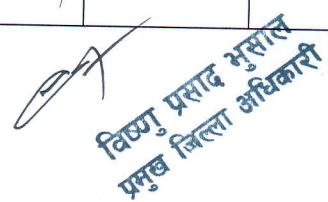 विष्णु प्रसाद भुसाल
प्रमुख जिल्ला अधिकारी